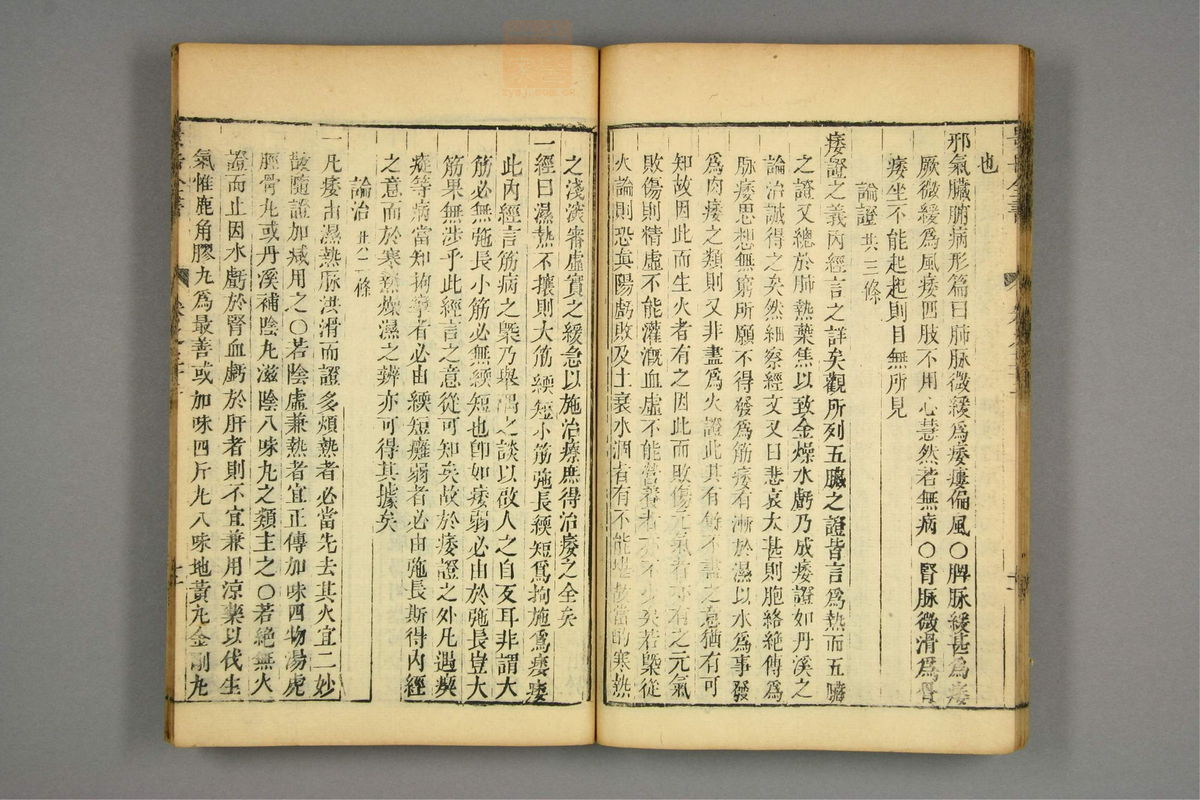 也
邪氣臟腑病形篇曰肺脉微緩爲痿瘻偏風○脾脉緩甚爲痿
厥微緩爲風痿四肢不用心慧然若無病○腎脉微滑爲骨
痿坐不能起起則目無所見
論證共三條
痿證之義內經言之詳矣觀所列五臟之證皆言爲熱而五臟
之證又總於肺熱葉焦以致金燥水虧乃成痿證如丹溪之
論治誠得之矣然細察經文又曰悲哀太甚則胞絡絶傳爲
脉痿思想無窮所願不得發爲筋痿有漸於濕以水爲事發
爲肉痿之類則又非盡爲火證此其有餘不盡之意猶有可
知故因此而生火者有之因此而敗傷元氣者亦有之元氣
敗傷則精虛不能灌漑血虛不能營養者亦不少矣若槩從
火論則恐眞陽虧敗及土衰水涸者有不能堪故當酌寒熱
之淺深審虛實之緩急以施治療庶得治痿之全矣
一經曰濕熱不攘則大筋緛短小筋弛長緛短爲拘弛爲痿
此內經言筋病之槩乃舉隅之談以啟人之自反耳非謂大
筋必無弛長小筋必無緛短也卽如痿弱必由於弛長豈大
筋果無涉乎此經言之意從可知矣故於痿證之外凡遇
症等病當知拘攣者必由緛短癱弱者必由弛長斯得內經
之意而於寒熱燥濕之辨亦可得其據矣
論治共二條
一凡痿由濕熱脉洪滑而證多煩熱者必當先去其火宜二妙
散隨證加减用之○若陰虛兼熱者宜正傳加味四物湯虎
脛骨丸或丹溪補陰丸滋陰八味丸之類主之○若絶無火
證而止因水虧於腎血虧於肝者則不宜兼用涼藥以伐生
氣惟鹿角膠丸爲最善或加味四斤丸八味地黃丸金剛丸